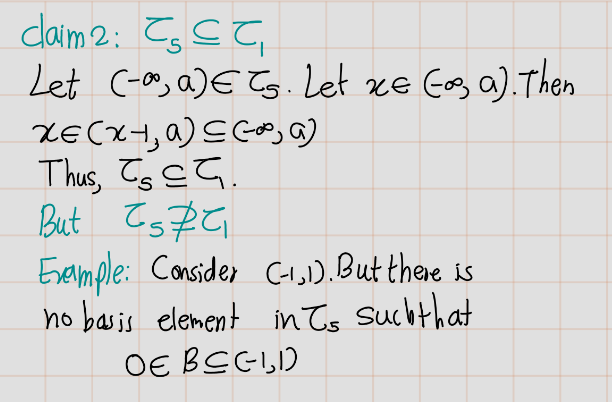 claim 2: τ₅ ⊆ τ₁
Let (-∞, a) ∈ τ₅. Let x ∈ (-∞, a). Then
x ∈ (x-1, a) ⊆ (-∞, a)
Thus, τ₅ ⊆ τ₁.
But τ₅ ⊉ τ₁
Example: Consider (-1,1). But there is
no basis element in τ₅ such that
0 ∈ B ⊆ (-1,1)